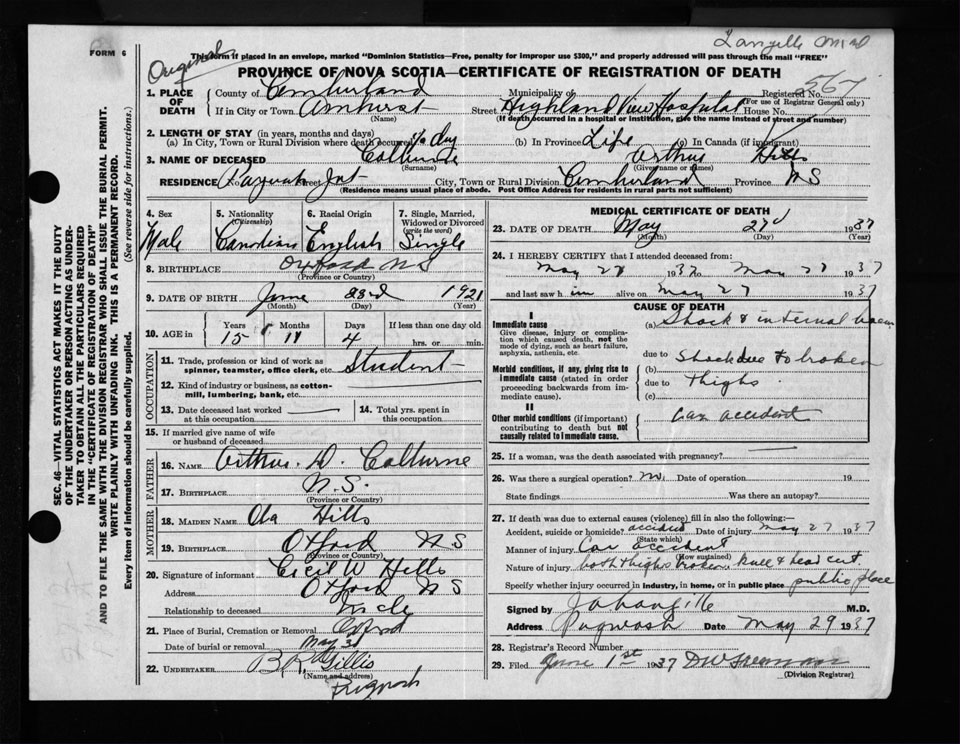 Langille Md
FORM 6
This form if placed in an envelope, marked "Dominion Statistics—Free, penalty for improper use $300," and properly addressed will pass through the mail "FREE"
Original
PROVINCE OF NOVA SCOTIA—CERTIFICATE OF REGISTRATION OF DEATH
567
1. PLACE OF DEATH
County of Cumberland Municipality of Registered No.
(For use of Registrar General only)
If in City or Town Amherst Street Highland View Hospital House No.
(Name) (If death occurred in a hospital or institution, give the name instead of street and number)
2. LENGTH OF STAY (in years, months and days)
(a) In City, Town or Rural Division where death occurred ½ day (b) In Province Life (c) In Canada (if immigrant)
3. NAME OF DECEASED Colburne Arthur Hills
(Surname) (Given name or names)
RESIDENCE No. Street Jct City, Town or Rural Division Cumberland Province NS
(Residence means usual place of abode. Post Office Address for residents in rural parts not sufficient)
SEC. 46—VITAL STATISTICS ACT MAKES IT THE DUTY
OF THE UNDERTAKER OR PERSON ACTING AS UNDER-
TAKER TO OBTAIN ALL THE PARTICULARS REQUIRED
IN THE "CERTIFICATE OF REGISTRATION OF DEATH"
AND TO FILE THE SAME WITH THE DIVISION REGISTRAR WHO SHALL ISSUE THE BURIAL PERMIT.
WRITE PLAINLY WITH UNFADING INK. THIS IS A PERMANENT RECORD.
Every item of information should be carefully supplied. (See reverse side for instructions.)
4. Sex
Male
5. Nationality
(Citizenship)
Canadian
6. Racial Origin
English
7. Single, Married,
Widowed or Divorced
(write the word)
Single
8. BIRTHPLACE Oxford NS
(Province or Country)
9. DATE OF BIRTH June 23rd 1921
(Month) (Day) (Year)
10. AGE in Years Months Days If less than one day old
15 11 4 hrs. or min.
OCCUPATION
11. Trade, profession or kind of work as
spinner, teamster, office clerk, etc. Student
12. Kind of industry or business, as cotton-
mill, lumbering, bank, etc.
13. Date deceased last worked
at this occupation
14. Total yrs. spent in
this occupation
15. If married give name of wife
or husband of deceased
FATHER
16. Name Arthur D. Colburne
17. Birthplace N.S.
(Province or Country)
MOTHER
18. Maiden Name Hills
19. Birthplace Oxford NS
(Province or Country)
20. Signature of informant Cecil W Hills
Address Oxford NS
Relationship to deceased Uncle
21. Place of Burial, Cremation or Removal Oxford
Date of burial or removal May
22. UNDERTAKER B. R. Gillis
(Name and address)
Pugwash
MEDICAL CERTIFICATE OF DEATH
23. DATE OF DEATH May 27 1937
(Month) (Day) (Year)
24. I HEREBY CERTIFY that I attended deceased from:
May 27 1937 to May 27 1937
and last saw him alive on May 27 1937
CAUSE OF DEATH
I
Immediate cause
Give disease, injury or complica-
tion which caused death, not the
mode of dying, such as heart failure,
asphyxia, asthenia, etc.
(a) Shock & internal
due to Shock due to broken
Morbid conditions, if any, giving rise to
immediate cause (stated in order
proceeding backwards from im-
mediate cause).
(b)
due to thighs
(c)
II
Other morbid conditions (if important)
contributing to death but not
causally related to immediate cause.
Car accident
25. If a woman, was the death associated with pregnancy?
26. Was there a surgical operation? No. Date of operation 19
State findings Was there an autopsy?
27. If death was due to external causes (violence) fill in also the following:—
Accident, suicide or homicide? accident Date of injury May 27 1937
(State which)
Manner of injury Car accident
(How sustained)
Nature of injury both thighs broken knee & head cut
Specify whether injury occurred in industry, in home, or in public place public place
Signed by M.D.
Address Pugwash Date May 29 1937
28. Registrar's Record Number
29. Filed June 1st 1937
(Division Registrar)